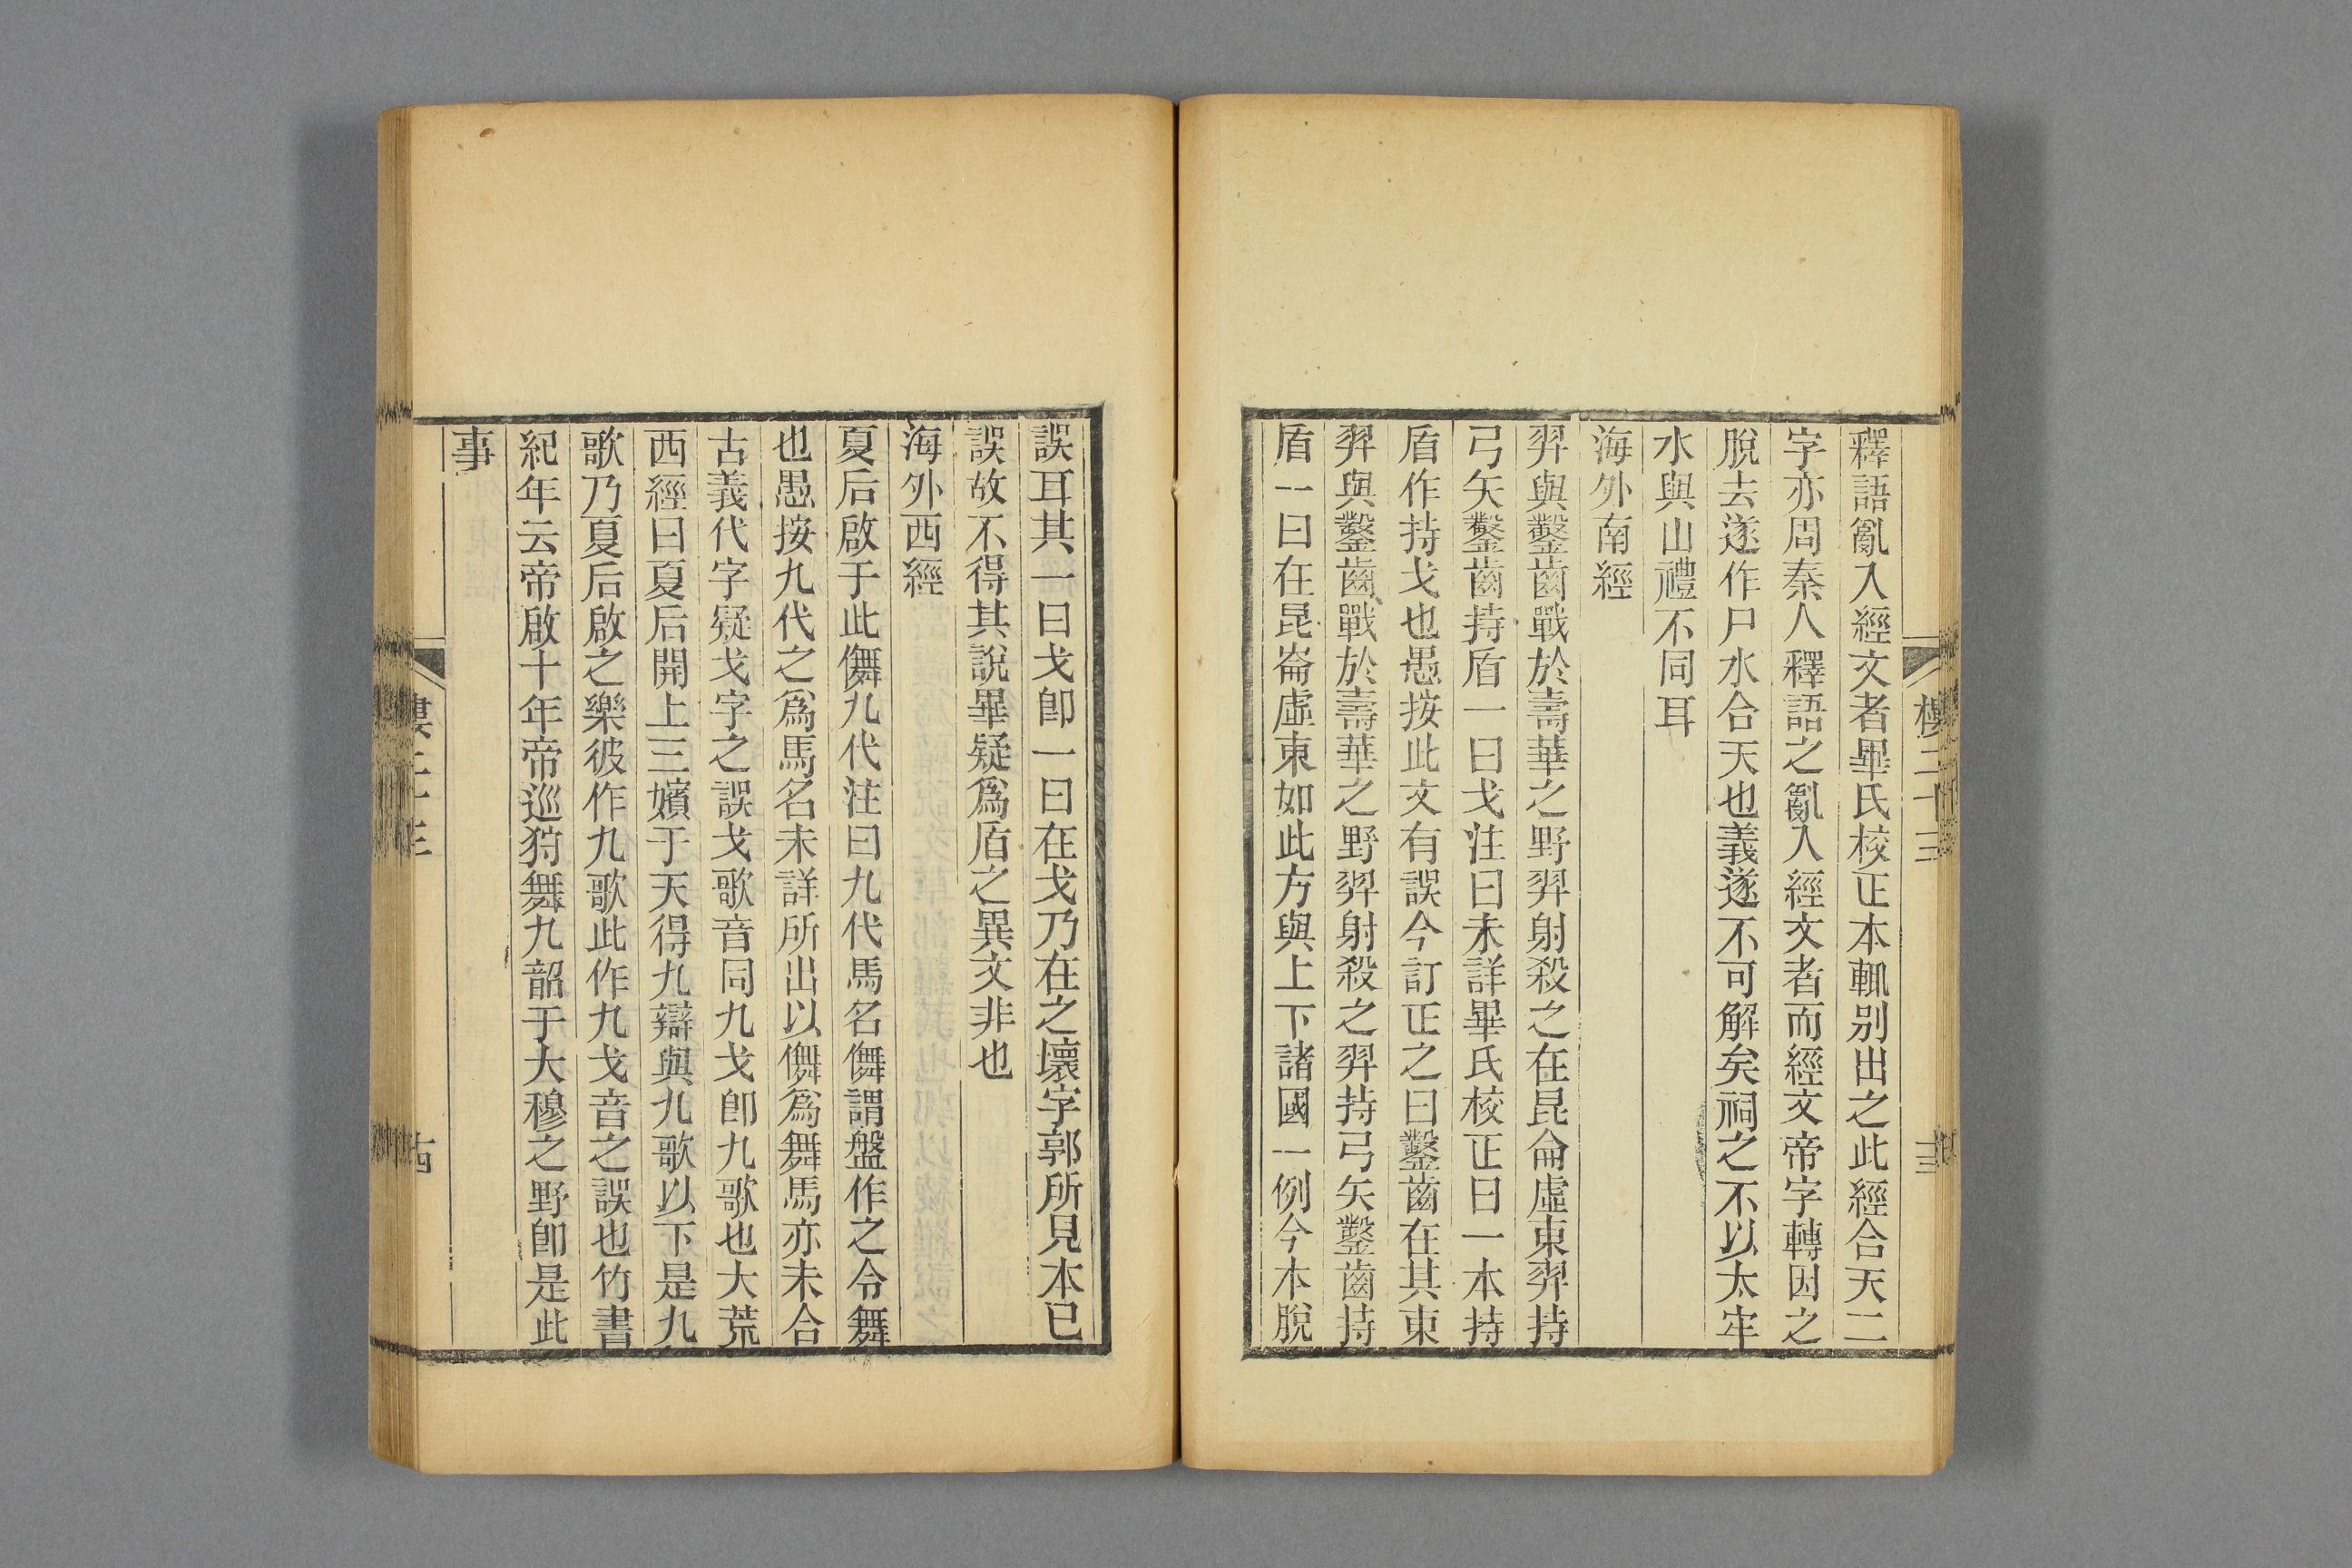 釋語亂入經文者畢氏校正本輒别出之此經合天二
字亦周秦人釋語之亂入經文者而經文帝字轉因之
脫去遂作尸水合天也義遂不可解矣祠之不以太牢
水與山禮不同耳
海外南經
羿與鑿齒戰於壽華之野羿射殺之在昆侖虛東羿持
弓矢鑿齒持盾一曰戈注曰未詳畢氏校正曰一本持
盾作持戈也愚按此文有誤今訂正之曰鑿齒在其東
羿與鑿齒戰於壽華之野羿射殺之羿持弓矢鑿齒持
盾一曰在昆崙虛東如此方與上下諸國一例今本脫
誤耳其一曰戈卽一曰在戈乃在之壞字郭所見本已
誤故不得其說畢疑爲盾之異文非也
海外西經
夏后啟于此儛九代注曰九代馬名儛謂盤作之令舞
也愚按九代之爲馬名未詳所出以儛爲舞馬亦未合
古義代字疑戈字之誤戈歌音同九戈卽九歌也大荒
西經曰夏后開上三嬪于天得九辯與九歌以下是九
歌乃夏后啟之樂彼作九歌此作九戈音之誤也竹書
紀年云帝啟十年帝巡狩舞九韶于大穆之野卽是此
事